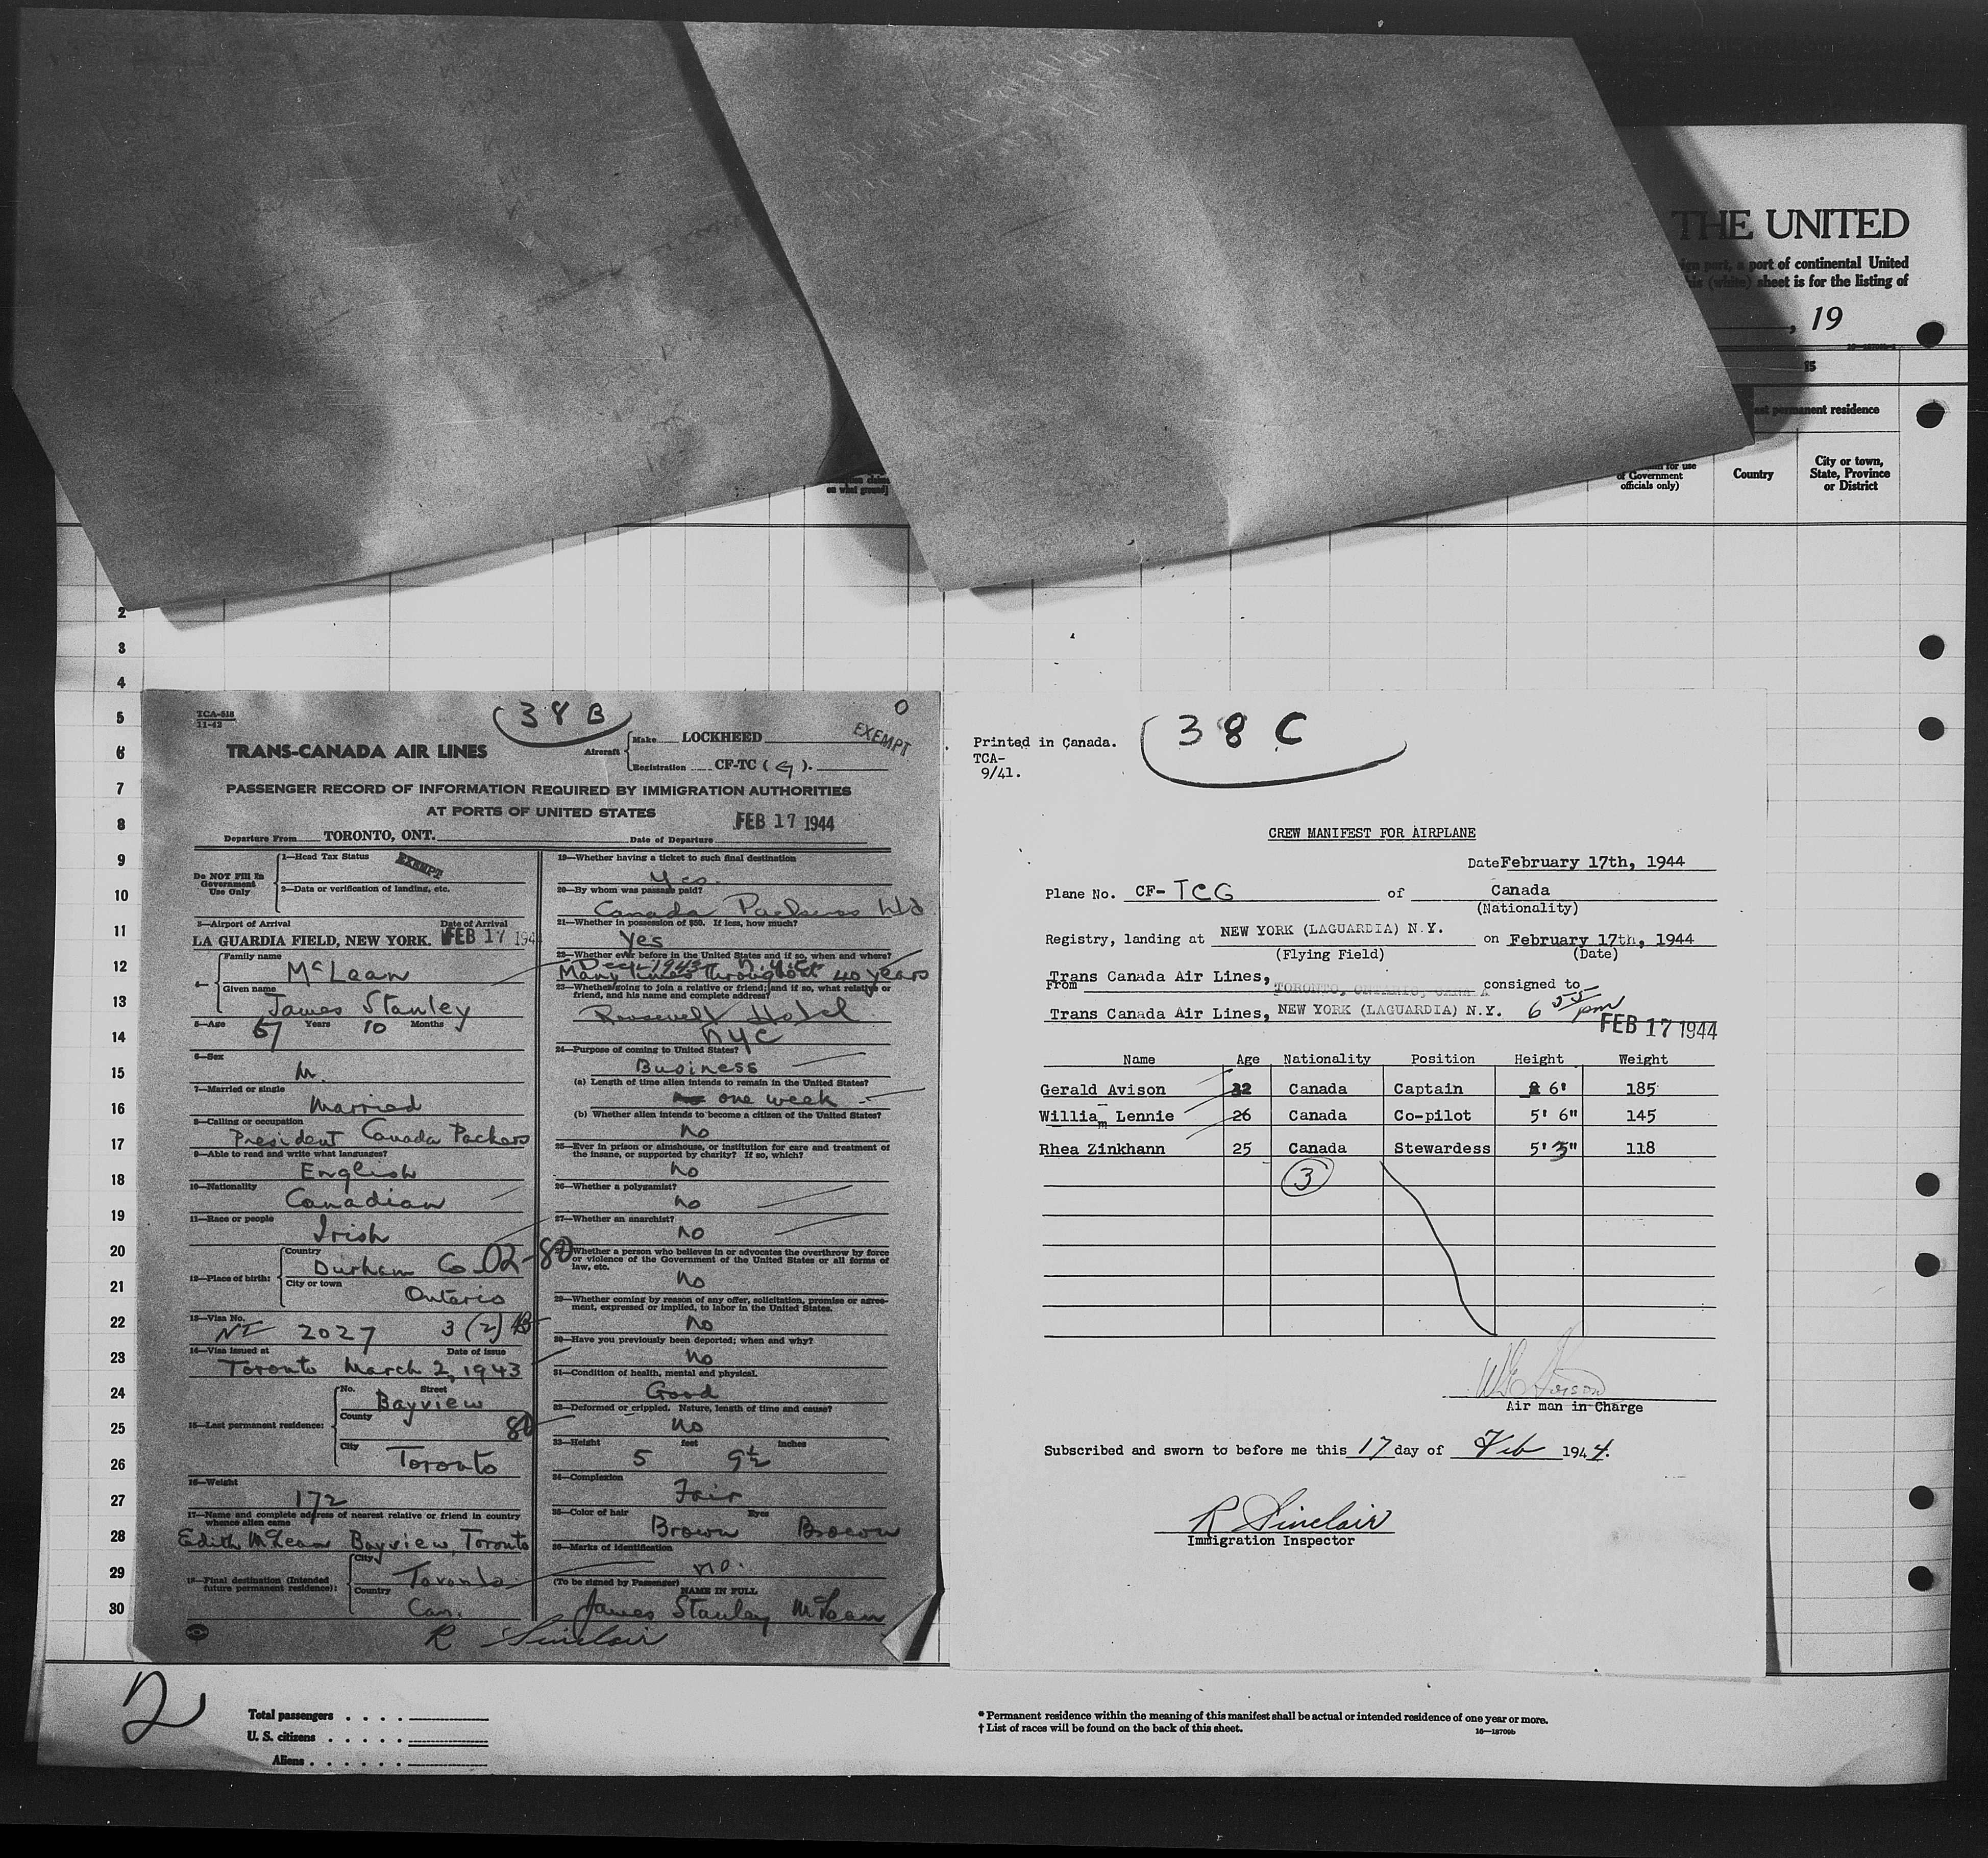 THE UNITED
port of continental United
sheet is for the listing of
, 19
15
permanent residence
on what ground]
for use
of Government
officials only)
Country
City or town,
State, Province
or District
2
3
4
5
6
7
8
9
10
11
12
13
14
15
16
17
18
19
20
21
22
23
24
25
26
27
28
29
30
TCA-518
11-42
38 B
O
EXEMPT
TRANS-CANADA AIR LINES
Aircraft
Make LOCKHEED
Registration CF-TC ( G ).
PASSENGER RECORD OF INFORMATION REQUIRED BY IMMIGRATION AUTHORITIES
AT PORTS OF UNITED STATES
FEB 17 1944
Departure From TORONTO, ONT. Date of Departure
Do NOT Fill In
Government
Use Only
1—Head Tax Status EXEMPT
2—Data or verification of landing, etc.
3—Airport of Arrival Date of Arrival
LA GUARDIA FIELD, NEW YORK. FEB 17 194
4—
Family name
McLean
Given name
James Stanley
5—Age 67 Years 10 Months
6—Sex
M.
7—Married or single
Married
8—Calling or occupation
President Canada Packers
9—Able to read and write what languages?
English
10—Nationality
Canadian
11—Race or people
Irish
12—Place of birth:
Country
Durham Co. 02-80
City or town
Ontario
13—Visa No.
NI 2027 3 (2) B
14—Visa issued at Date of issue
Toronto March 2, 1943
15—Last permanent residence:
No. Street
Bayview
County
80
City
Toronto
16—Weight
172
17—Name and complete address of nearest relative or friend in country
whence alien came
Edith McLean Bayview, Toronto
18—Final destination (Intended
future permanent residence):
City
Toronto
Country
Can.
19—Whether having a ticket to such final destination
Yes.
20—By whom was passage paid?
Canada Packers Ltd
21—Whether in possession of $50. If less, how much?
Yes
22—Whether ever before in the United States and if so, when and where?
Dec. 1943 N.Y.C.
Many times throughout 40 years
23—Whether going to join a relative or friend; and if so, what relative or
friend, and his name and complete address?
Roosevelt Hotel
NYC
24—Purpose of coming to United States?
Business
(a) Length of time alien intends to remain in the United States?
one week
(b) Whether alien intends to become a citizen of the United States?
no
25—Ever in prison or almshouse, or institution for care and treatment of
the insane, or supported by charity? If so, which?
no
26—Whether a polygamist?
no
27—Whether an anarchist?
no
Whether a person who believes in or advocates the overthrow by force
or violence of the Government of the United States or all forms of
law, etc.
no
29—Whether coming by reason of any offer, solicitation, promise or agree-
ment, expressed or implied, to labor in the United States.
no
30—Have you previously been deported; when and why?
no
31—Condition of health, mental and physical.
Good
32—Deformed or crippled. Nature, length of time and cause?
no
33—Height feet inches
5 9½
34—Complexion
Fair
35—Color of hair Eyes
Brown Brown
36—Marks of identification
no.
(To be signed by Passenger) NAME IN FULL
James Stanley McLean
R Sinclair
38 C
Printed in Canada.
TCA-
9/41.
CREW MANIFEST FOR AIRPLANE
Date February 17th, 1944
Plane No. CF- TCG of Canada
(Nationality)
Registry, landing at NEW YORK (LAGUARDIA) N.Y. on February 17th, 1944
(Flying Field) (Date)
Trans Canada Air Lines,
From TORONTO, ONTARIO, CANADA consigned to
Trans Canada Air Lines, NEW YORK (LAGUARDIA) N.Y. 6 55 pm
FEB 17 1944
Name Age Nationality Position Height Weight
Gerald Avison 32 Canada Captain 6' 185
William Lennie 26 Canada Co-pilot 5' 6" 145
Rhea Zinkhann 25 Canada Stewardess 5' 3" 118
3
Air man in Charge
Subscribed and sworn to before me this 17 day of Feb 1944.
R Sinclair
Immigration Inspector
2
Total passengers . . . .
U. S. citizens . . . . .
Aliens . . . . . .
* Permanent residence within the meaning of this manifest shall be actual or intended residence of one year or more.
† List of races will be found on the back of this sheet.
16—18709b